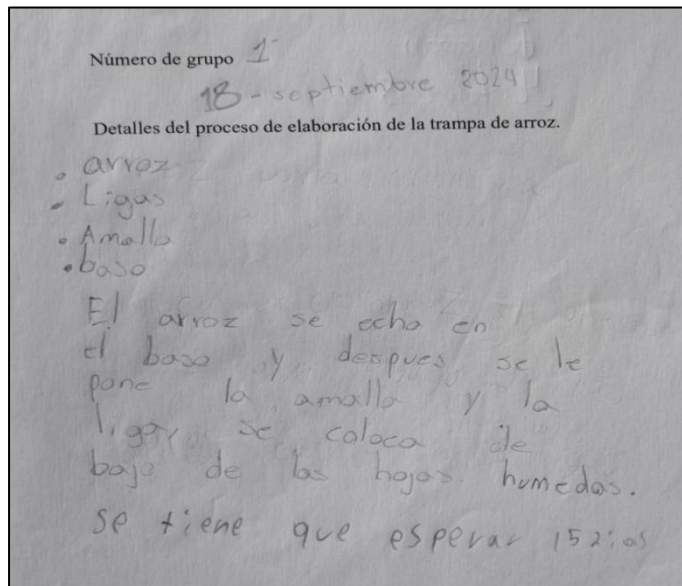 Número de grupo 1
18 - septiembre 2024
Detalles del proceso de elaboración de la trampa de arroz.
• arroz
• Ligas
• Amalla
• baso
El arroz se echa en
el baso y despues se le
pone la amalla y la
liga y se coloca de
bajo de las hojas humedas.
se tiene que esperar 15 días